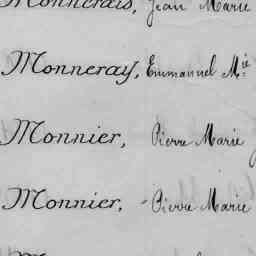 Monnerais, Jean Marie
Monneray, Emmanuel Mie
Monnier, Pierre Marie
Monnier, Pierre Marie